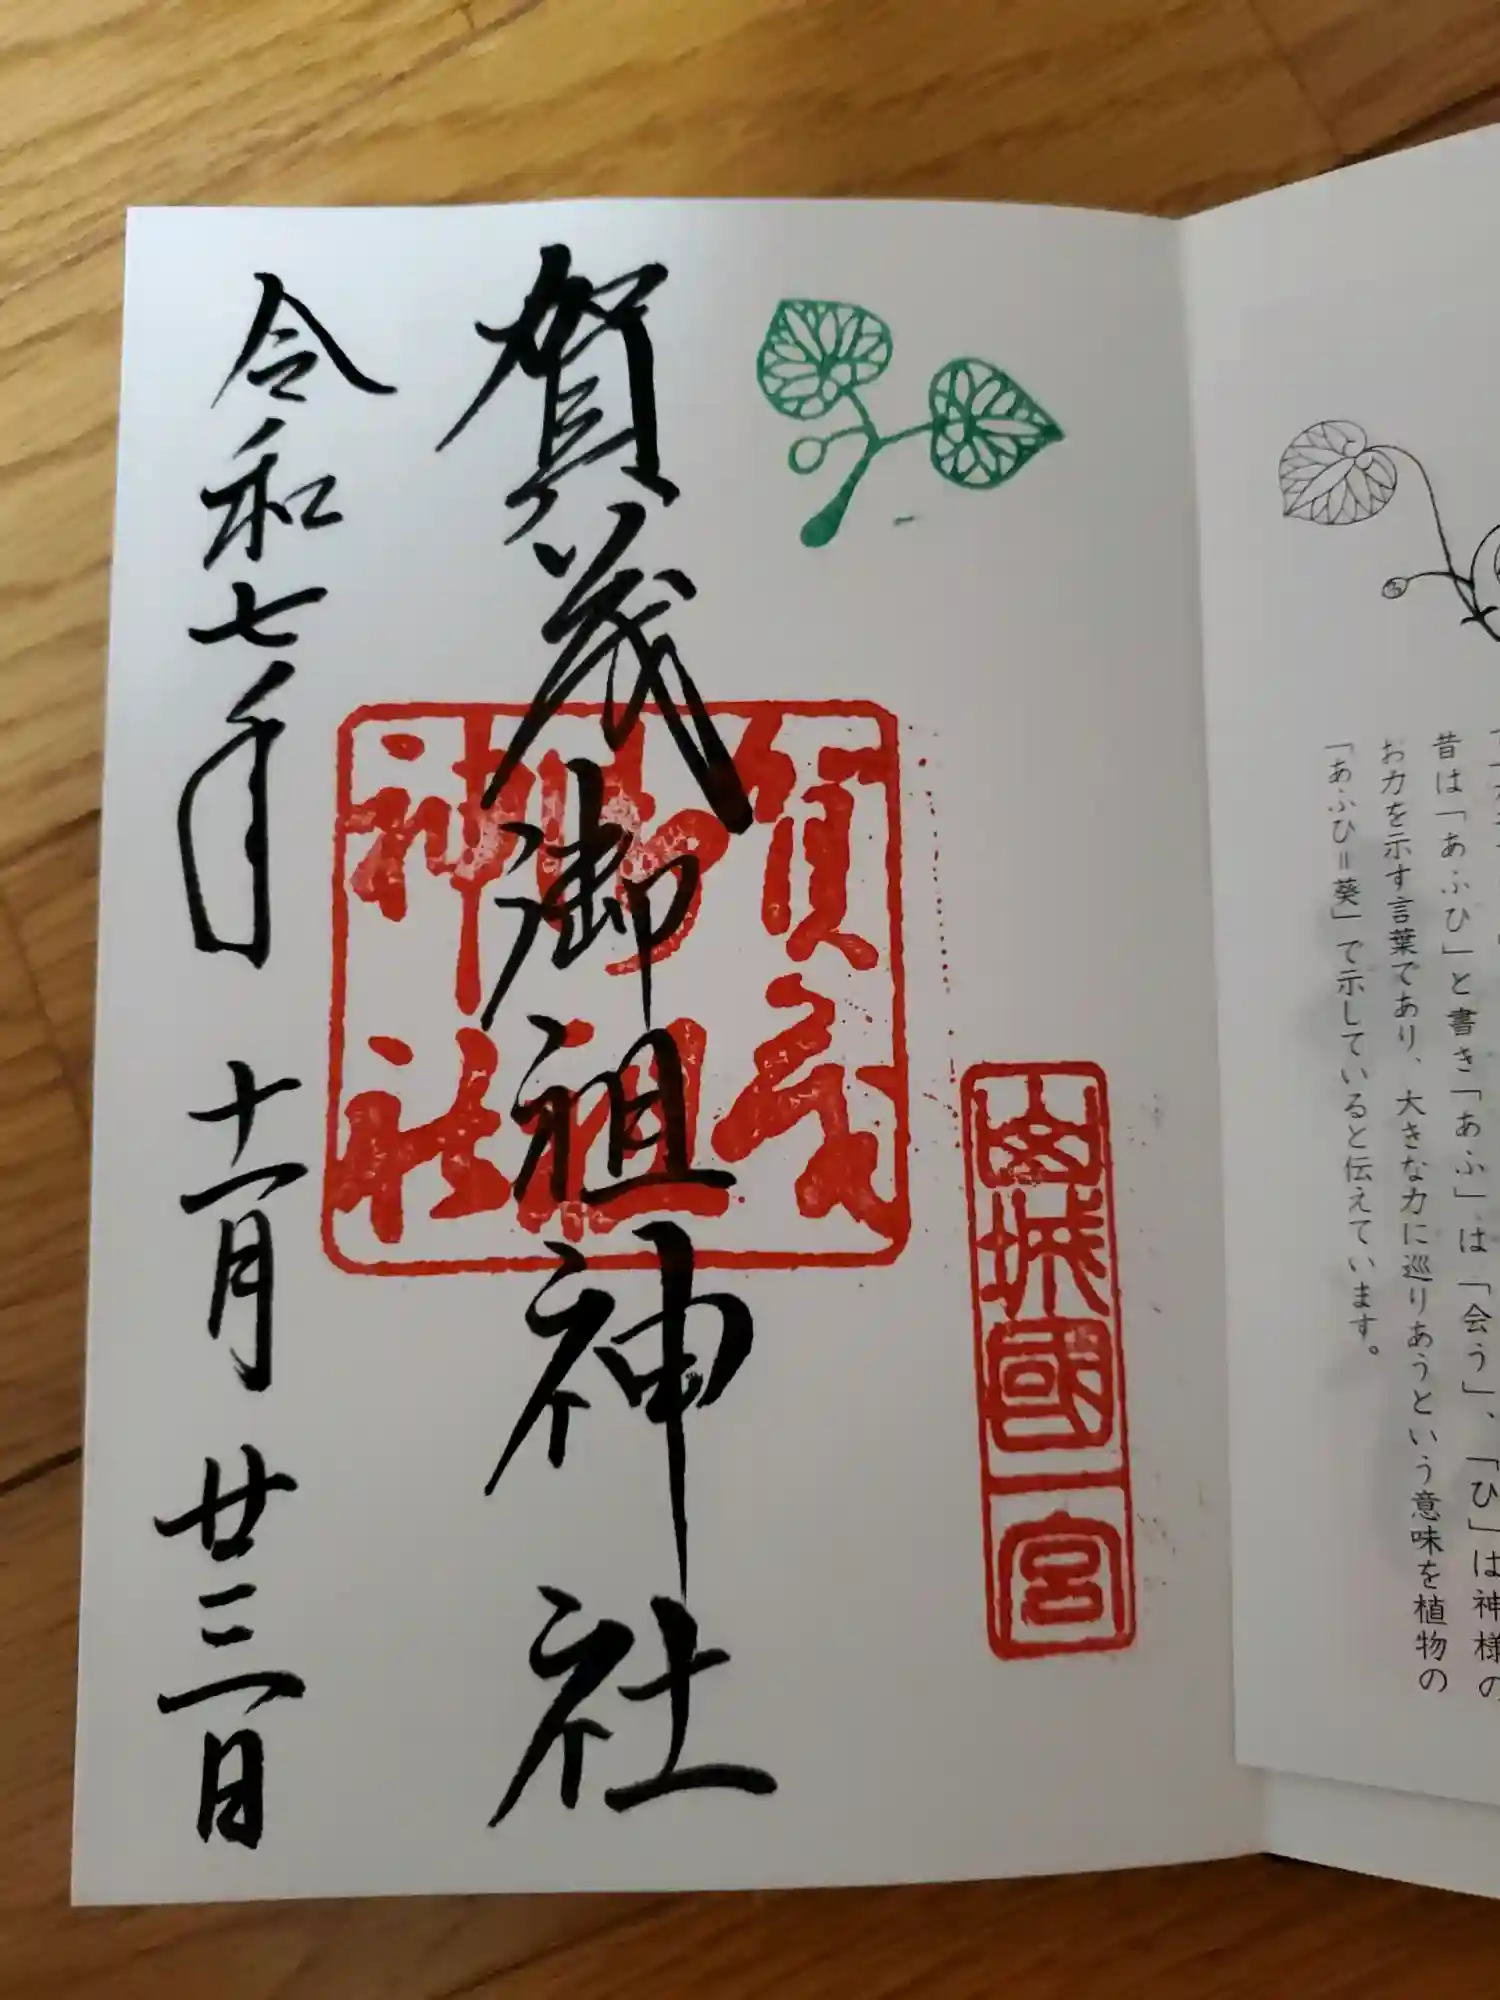 昔は「あふひ」と書き「あふ」は「会う」、「ひ」は神様の
お力を示す言葉であり、大きな力に巡りあうという意味を植物の
「あふひ＝葵」で示していると伝えています。
山城國一宮
賀茂御祖神社
賀茂
御祖
神社
令和七年 十一月 廿三日